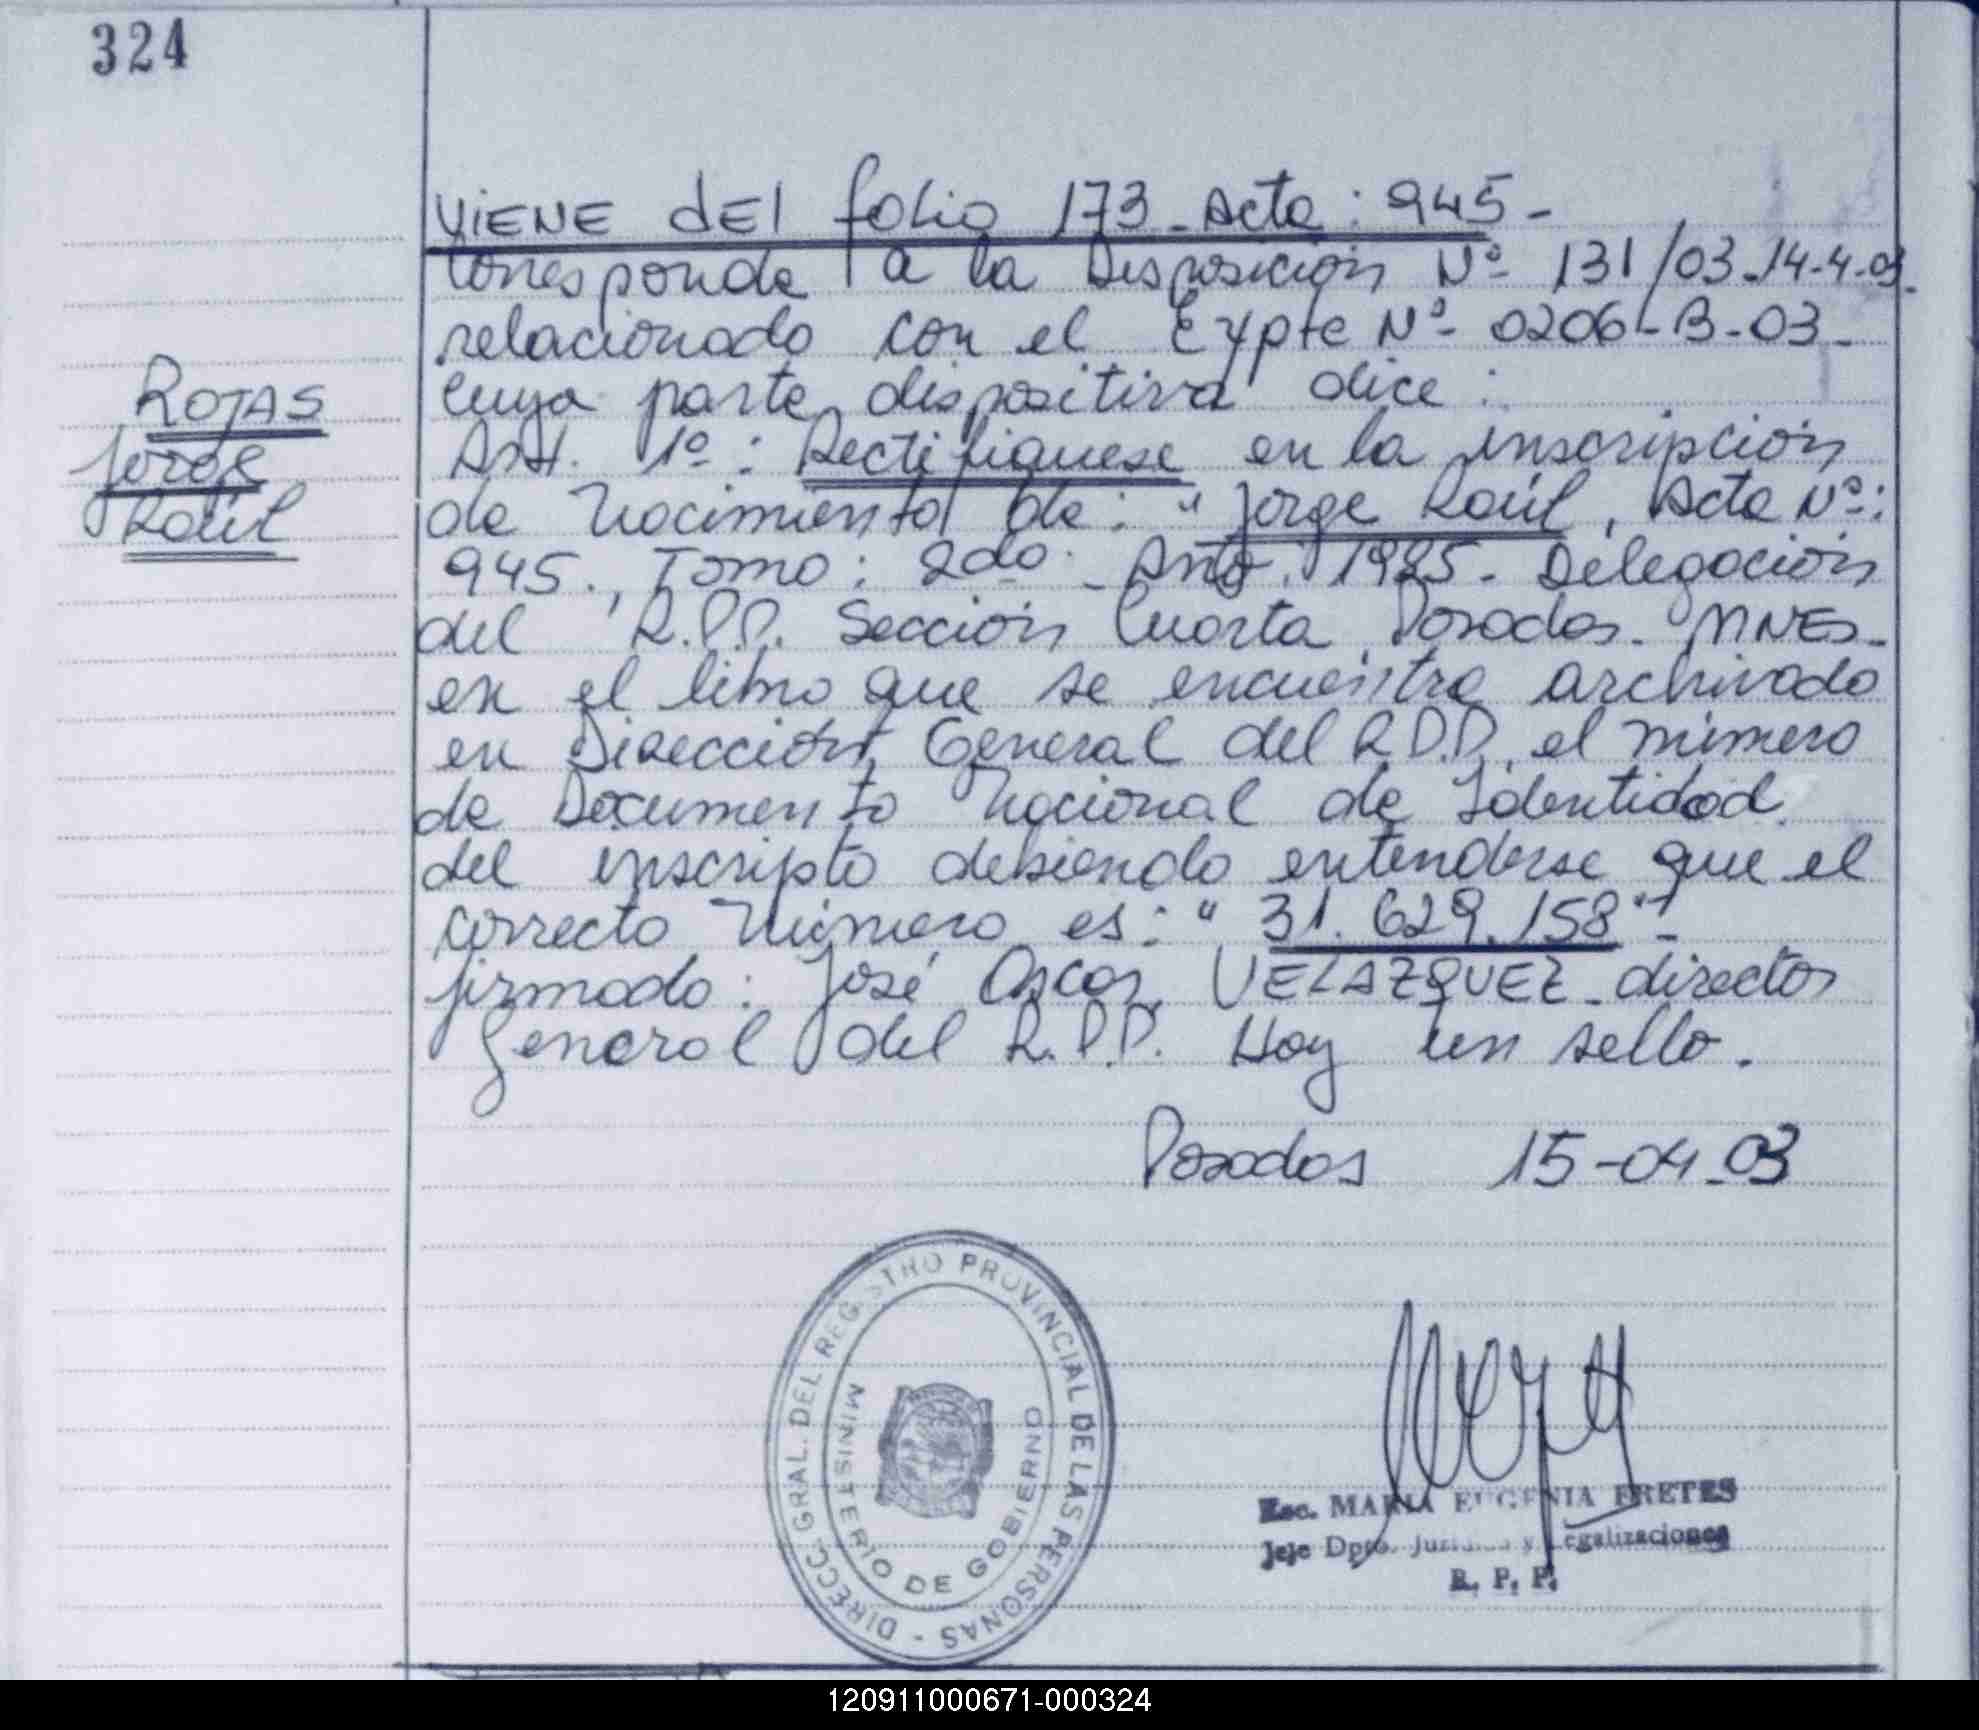 324
VIENE dEl folio 173 - Acta : 945 -
Corresponde a la Disposición Nº 131/03 - 14-4-03.
relacionado con el Expte Nº 0206-B-03 -
cuya parte dispositiva dice :
ROJAS
Jorge
Raúl
Art. 1º : Rectifiquese en la inscripción
de Nacimiento de : " Jorge Raúl, Acta Nº :
945., Tomo : 2do - Año : 1985 - Delegación
del R.P.P. Sección Cuarta Posadas - MNES -
en el libro que se encuentra archivado
en Dirección General del R.P.P. el número
de Documento Nacional de Identidad
del inscripto debiendo entenderse que el
correcto Número es : " 31.629.158 " -
firmado : José Oscar VELAZQUEZ - director
General del R.P.P. Hay un sello .
Posadas 15-04-03
DIRECC. GRAL. DEL REGISTRO PROVINCIAL DE LAS PERSONAS -
MINISTERIO DE GOBIERNO
Esc. MARIA EUGENIA FRETES
Jefe Dpto. y Legalizaciones
R. P. P.
120911000671-000324